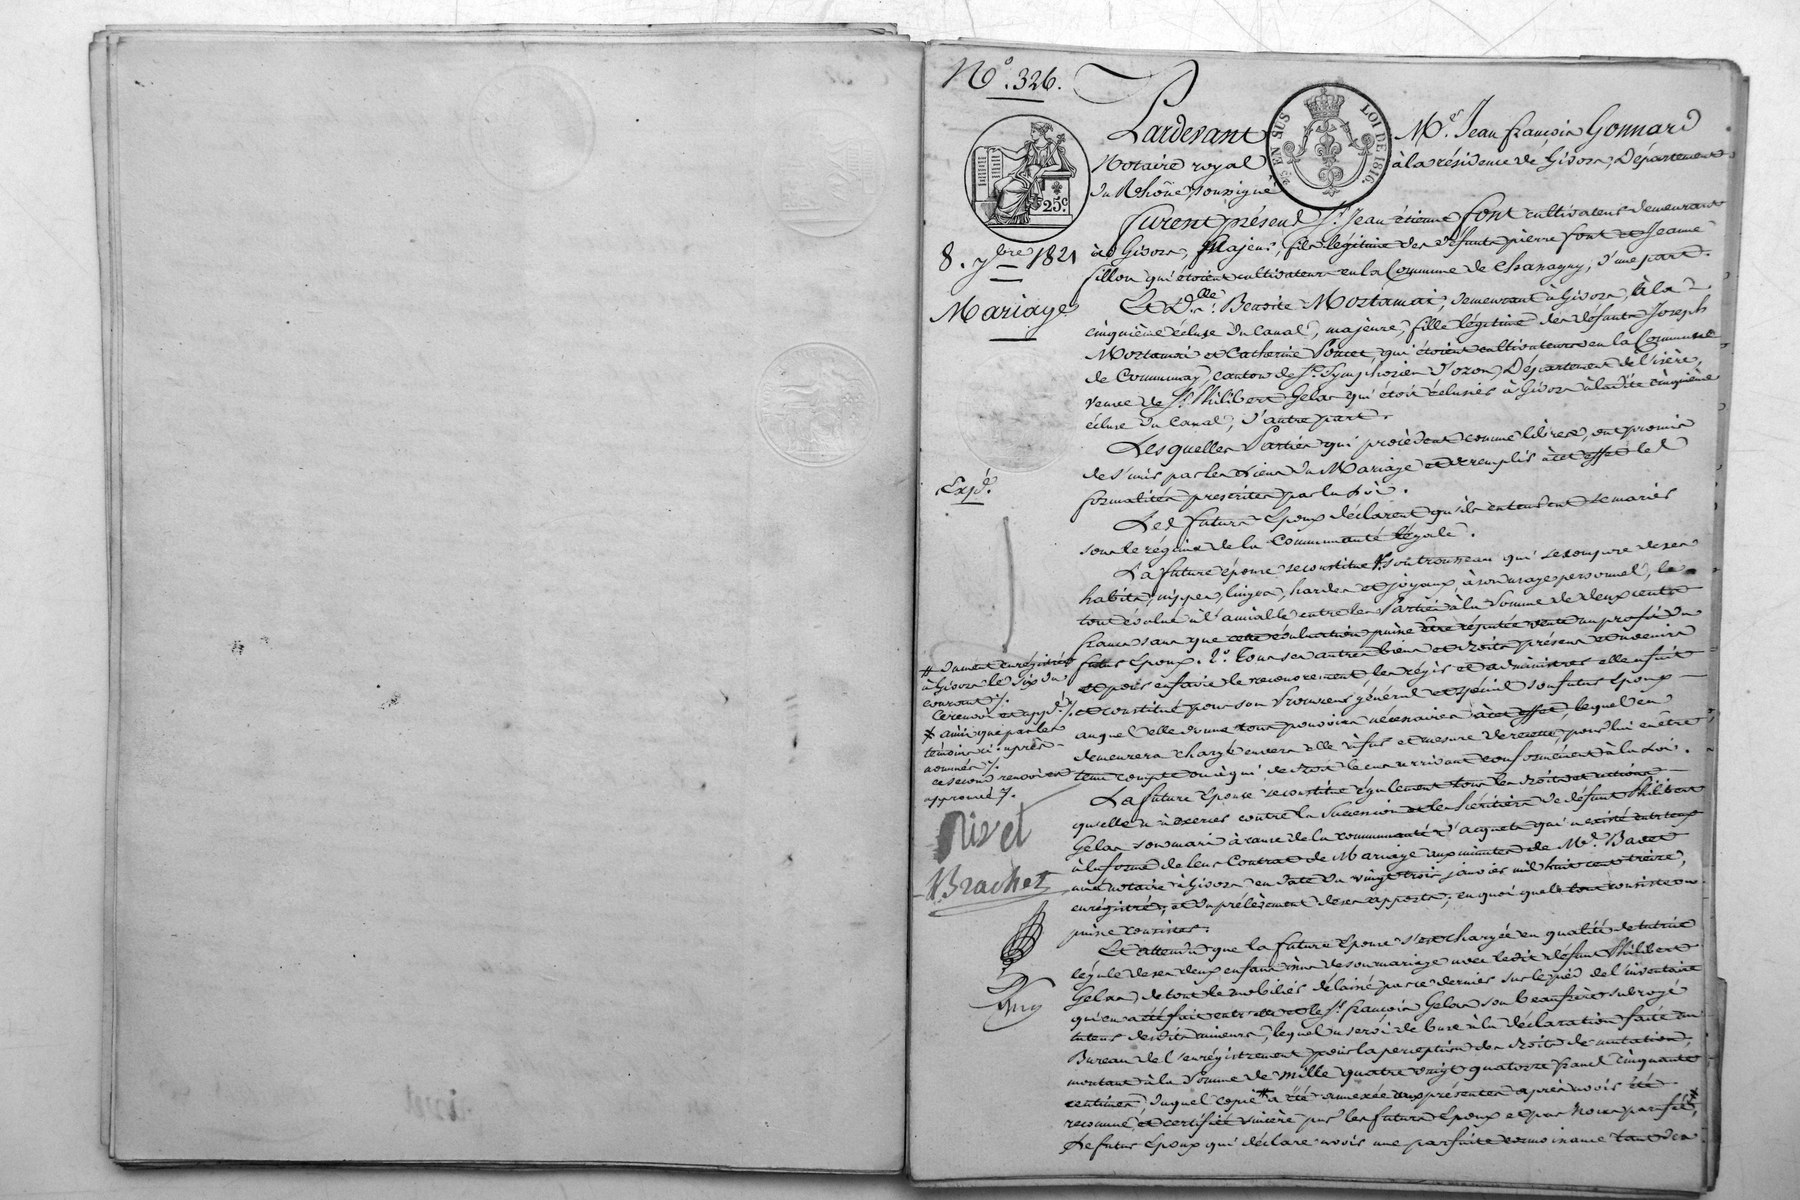 N.° 326.
25.c
EN SUS
LOI DE 1816.
8. 7bre 1821
Mariage
Expd.
Pardevant Me. Jean françois Gonnard
Notaire royal à la résidence de Givors, Département
du Rhône, soussigné
furent présens Sr. Jean étienne font cultivateur demeurant
à Givors, Majeur, fils légitime des défunts pierre font et Jeanne
fillon qui étoient cultivateurs en la Commune de Chassagny, d'une part.
Et Dlle. Benoite Mortamai, demeurant à Givors, à la
cinquième écluse du Canal, majeure, fille légitime des défunts Joseph
Mortamai et Catherine Poncet, qui étoient cultivateurs en la Commune
de Communay, canton de St. Symphorien d'ozon, Département de l'isère,
veuve de Sr. Philibert Gelas qui étoit éclusier à Givors à ladite cinquième
écluse du Canal, d'autre part.
Lesquelles Parties qui procèdent comme libres, ont promis
de s'unir par les liens du Mariage et de remplir à cet effet les
formalités prescrites par la Loi.
Les futurs Epoux déclarent qu'ils entendent se marier
sous le régime de la Communauté légale.
La future épouse se constitue 1.° son trousseau qui se compose de ses
habits, nippes, linges, hardes et joyaux à son usage personnel, le
tout évalué à l'amiable entre les Parties à la Somme de deux cents
francs sans que cette évaluation puisse être réputée vente au profit du
futur Epoux. 2.° Tous ses autres biens et droits présens et à venir
et pour en faire le recouvrement, les régir et administrer elle a fait
et constitué pour son Procureur général et spécial son futur Epoux
auquel elle donne tous pouvoirs nécessaires à cet effet, lequel en
demeurera chargé envers elle à fur et mesure de recette, pour lui en être
tenu compte ou à qui de droit le cas arrivant conformément à la Loi.
La future Epouse se constitue également tous les droits et actions
qu'elle a à exercer contre la Succession et les héritiers de défunt Philibert
Gelas son mari à cause de la communauté d'acquets qui a existé entr'eux
à la forme de leur Contrat de Mariage aux minutes de Me. Badet
notaire à Givors en date du vingt trois janvier mil huit cent treize,
enrégistré, et du prélèvement de ses apports, en quoi que le tout consiste ou
puisse consister.
Et attendu que la future Epouse s'est chargée en qualité de tutrice
légale de ses deux enfans issus de son mariage avec ledit défunt Philibert
Gelas, de tout le mobilier délaissé par ce dernier sur le pied de l'inventaire
qui en a été fait entr'elle et le Sr. françois Gelas son beaufrère subrogé
tuteur desdits mineurs, lequel a servi de base à la déclaration faite au
Bureau de l'enrégistrement pour la perception des droits de mutation,
montant à la Somme de mille quatre vingt quatorze francs cinquante
centimes, duquel copie # a été annexée aux présentes après avoir été
reconnue et certifiée sincère par les futurs Epoux et par Nous paraphé,
Le futur Epoux qui déclare avoir une parfaite connoissance tant des
# dument enrégistrée
à Givors le six du
courant /.
Ce renvoi est appd. /.
* ainsi que par les
témoins ci après
nommés /.
ce second renvoi est
approuvé /.
Rivet
Brachet